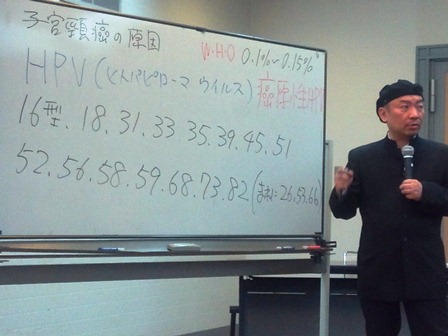 子宮頸癌の原因
W.H.O 0.1%~0.15%
HPV(ヒトパピローマ ウイルス) 癌原性HPV
16型.18.31.33 35.39.45.51
52.56.58.59.68.73.82(まれに26.53.66)